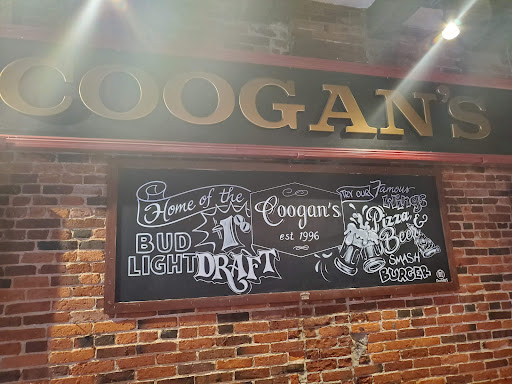 COOGAN'S
Home of the
1$
BUD
LIGHT
DRAFT
Coogan's
est 1996
TRY OUR Famous
WINGS
Pizza &
Beer
SMASH
BURGER